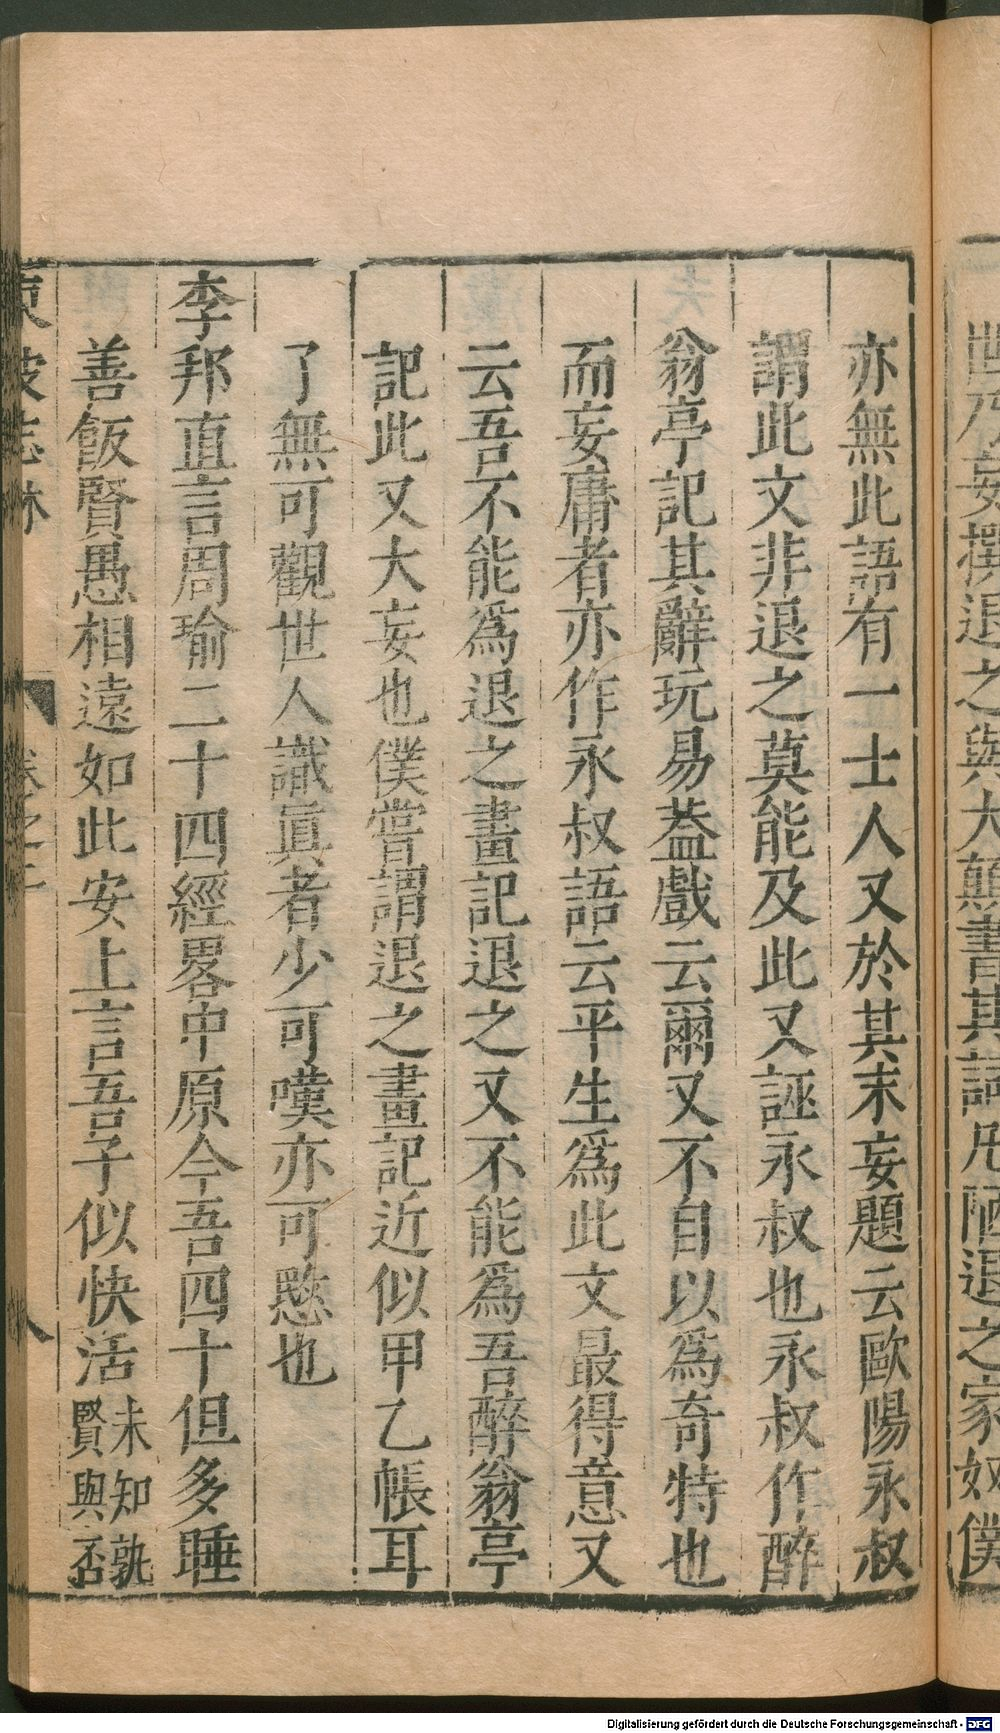 世乃妄撰退之與大顛書其詞凡陋退之家奴僕
亦無此語有一士人又於其末妄題云歐陽永叔
謂此文非退之莫能及此又誣永叔也永叔作醉
翁亭記其辭玩易葢戲云爾又不自以爲奇特也
而妄庸者亦作永叔語云平生爲此文最得意又
云吾不能爲退之畫記退之又不能爲吾醉翁亭
記此又大妄也僕嘗謂退之畫記近似甲乙帳耳
了無可觀世人識眞者少可嘆亦可愍也
李邦直言周瑜二十四經畧中原今吾四十但多睡
善飯賢愚相遠如此安上言吾子似快活未知孰
賢與否
東坡志林
卷之二
八
Digitalisierung gefördert durch die Deutsche Forschungsgemeinschaft - DFG